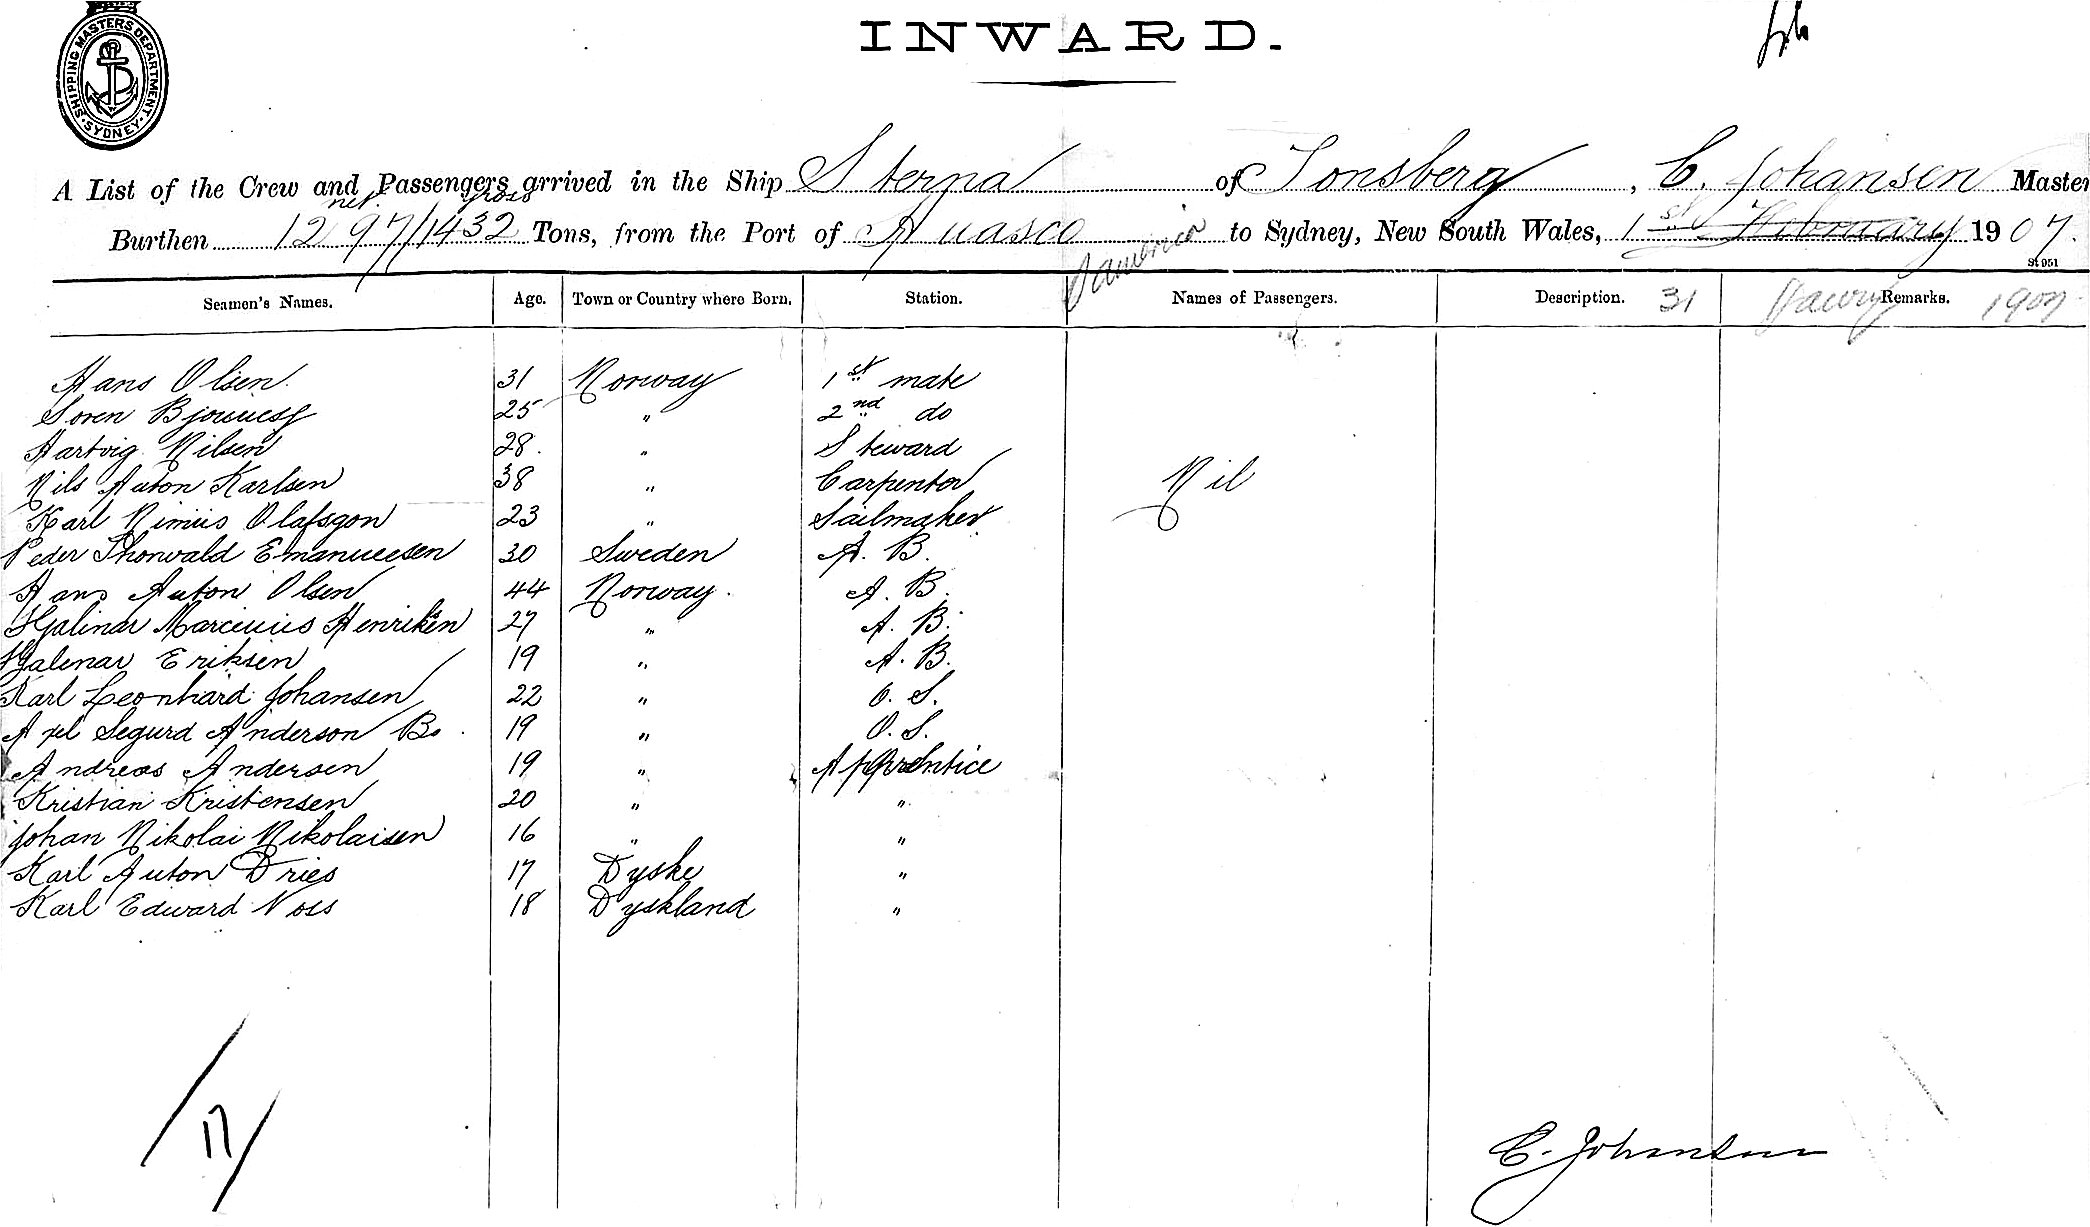 SHIPPING MASTERS DEPARTMENT
SYDNEY
INWARD.
A List of the Crew and Passengers arrived in the Ship Sterna of Tonsberg, C. Johansen Master
net gross
Burthen 1297/1432 Tons, from the Port of Huasco S America to Sydney, New South Wales, 1st February 1907.
St 951
Seamen's Names. Age. Town or Country where Born. Station. Names of Passengers. Description. 31 Remarks. 1907
Hans Olsen. 31 Norway 1st mate
Soren 25 " 2nd do
Hartvig Nilsen 28. " Steward
Nils Anton Karlsen 38 " Carpenter Nil
Karl 23 " Sailmaker
Peder Thorwald Emanuelsen 30 Sweden A. B.
Hans Anton Olsen 44 Norway. A. B.
Hjalmar Henriksen 27 " A. B.
Hjalmar Eriksen 19 " A. B.
Karl Leonhard Johansen 22 " O. S.
Axel Segurd Anderson Bo. 19 " O. S.
Andreas Andersen 19 " Apprentice
Kristian Kristensen 20 " "
Johan Nikolai Nikolaisen 16 " "
Karl Anton Dries 17 Dyske "
Karl Edward Voss 18 Dyskland "
/17/
C. Johansen